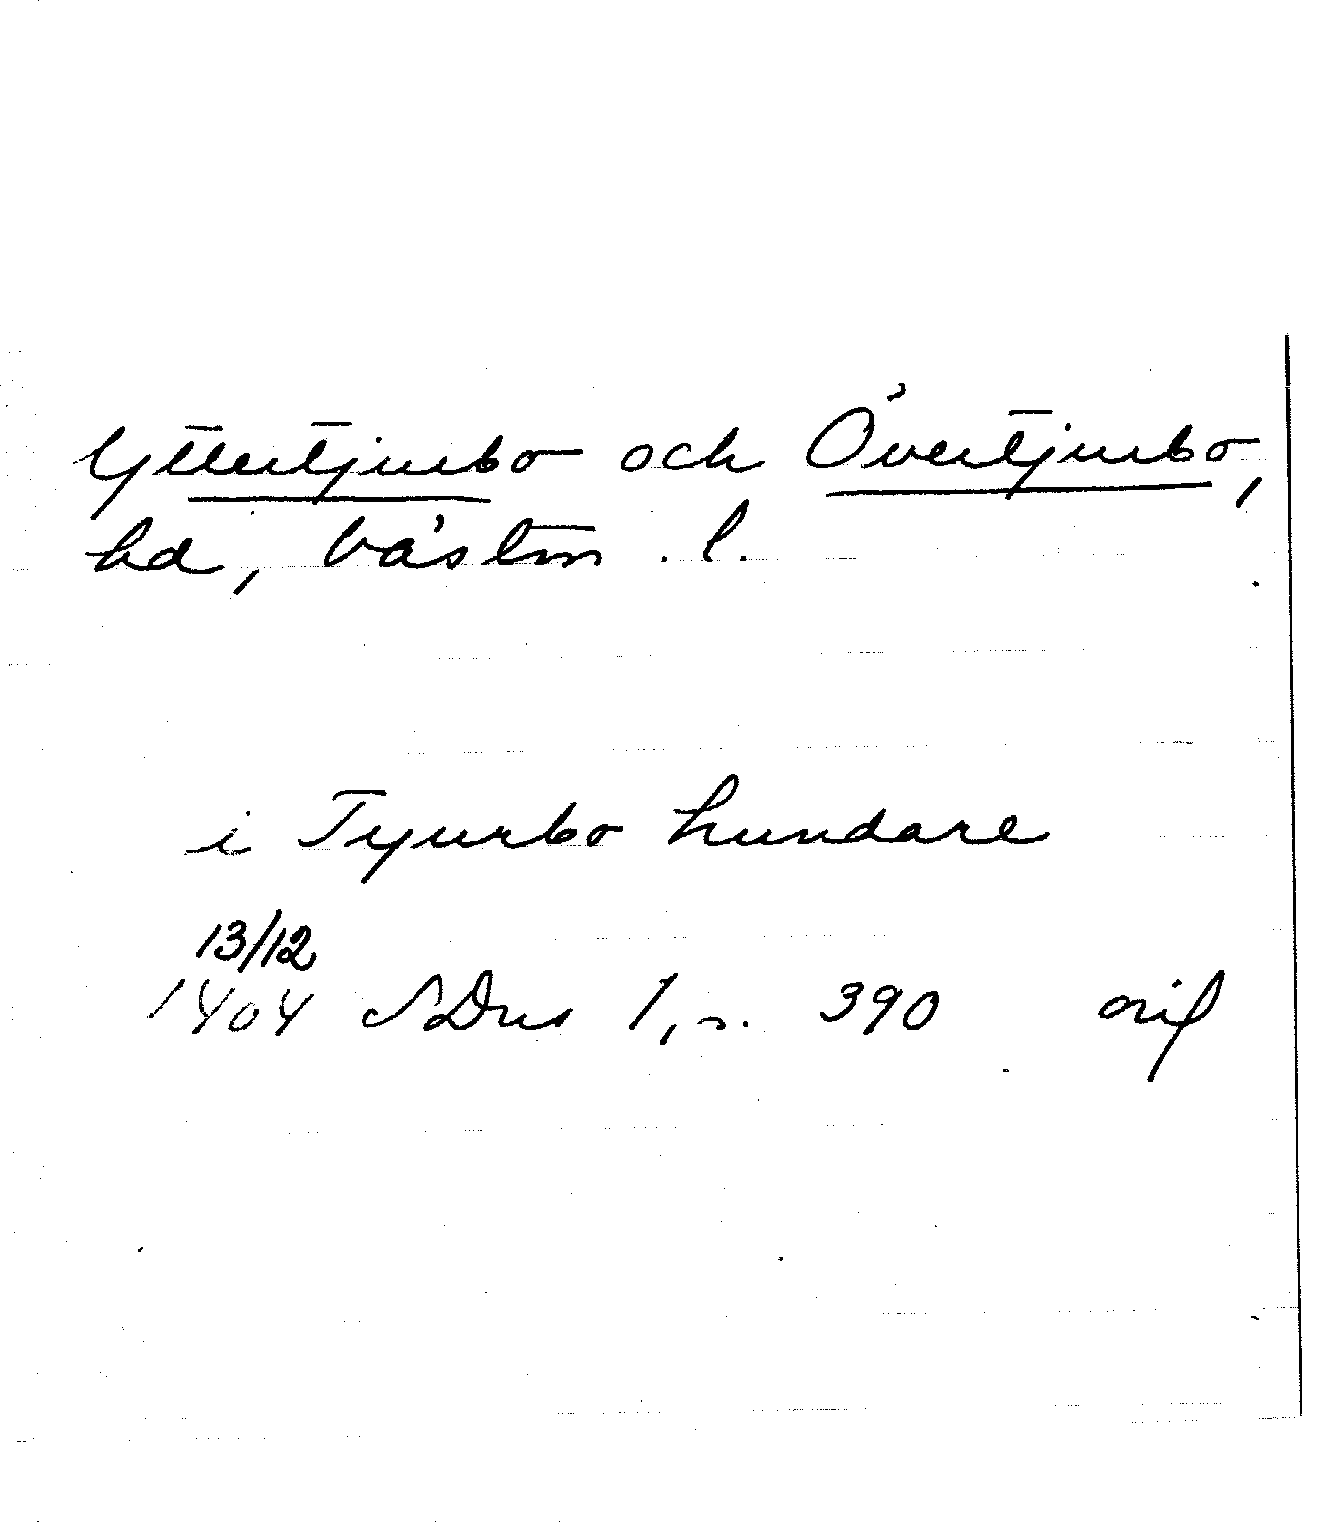 Yttertjurbo och Övertjurbo,
hd, Västm. l.
i Tyurbo hundare
13/12
1404 SDns 1, s. 390 orig